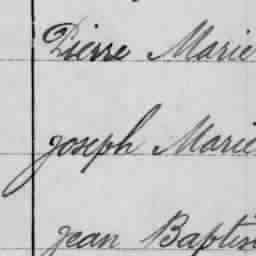 Pierre Marie
Joseph Marie
Jean Baptis